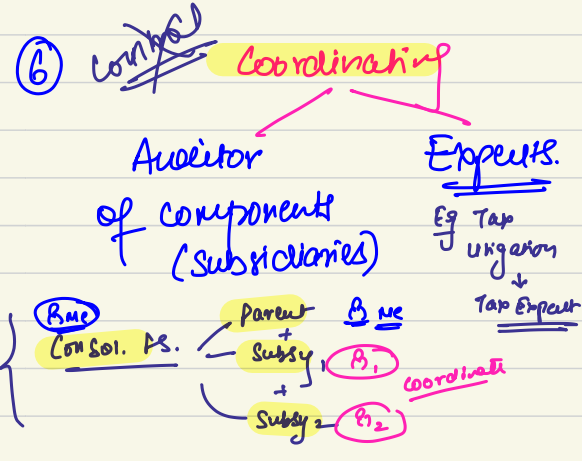 6
Control
Coordinating
Auditor
of components
(Subsidiaries)
Experts.
Eg Tax
litigation
Tax Expert
Me
Consol. FS.
Parent
Me
+
Subsy 1
+
Subsy 2
Coordinate